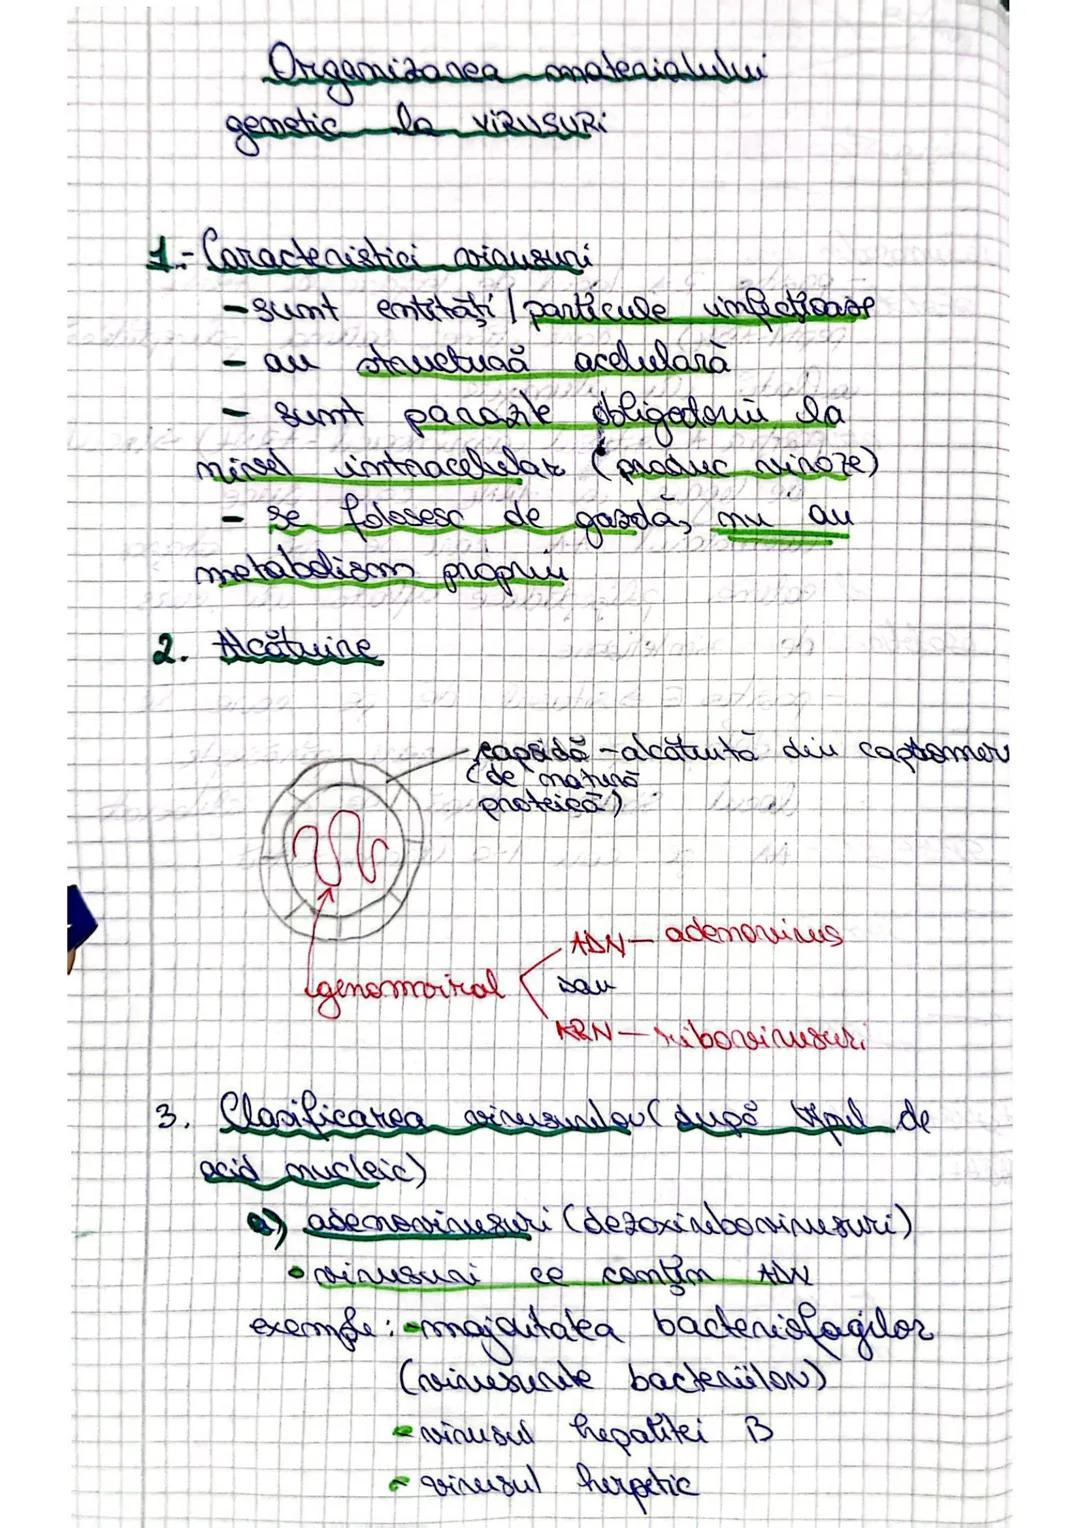 Organizarea materialului
genetic la VIRUSURi
1.- Caracteristici virusuri
- sunt entități / particule infecțioase
- au structură acelulară
- sunt parazite obligatorii la
nivel intracelular (produc viroze)
- se folosesc de gazdă, nu au
metabolism propriu
2. Alcătuire
capsidă - alcătuită din capsomeri
(de natură
proteică)
ADN - adenovirus
genom viral
sau
ARN - ribovirusuri
3. Clasificarea virusurilor (după tipul de
acid nucleic)
a) adenovirusuri (dezoxiribovirusuri)
• virusuri ce conțin ADN
exemple: - majoritatea bacteriofagilor
(virusurile bacteriilor)
- virusul hepatitei B
- virusul herpetic